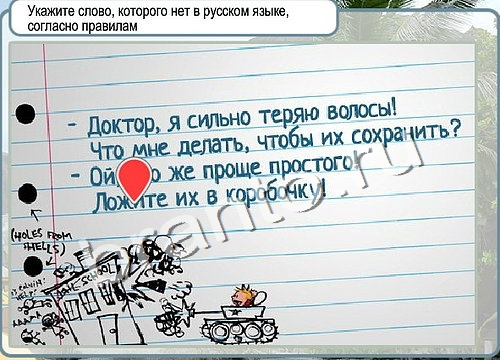 Укажите слово, которого нет в русском языке,
согласно правилам
- Доктор, я сильно теряю волосы!
Что мне делать, чтобы их сохранить?
- Ой, же проще простого!
Ложите их в коробочку!
(HOLES FROM
SHELLS)
branto.ru